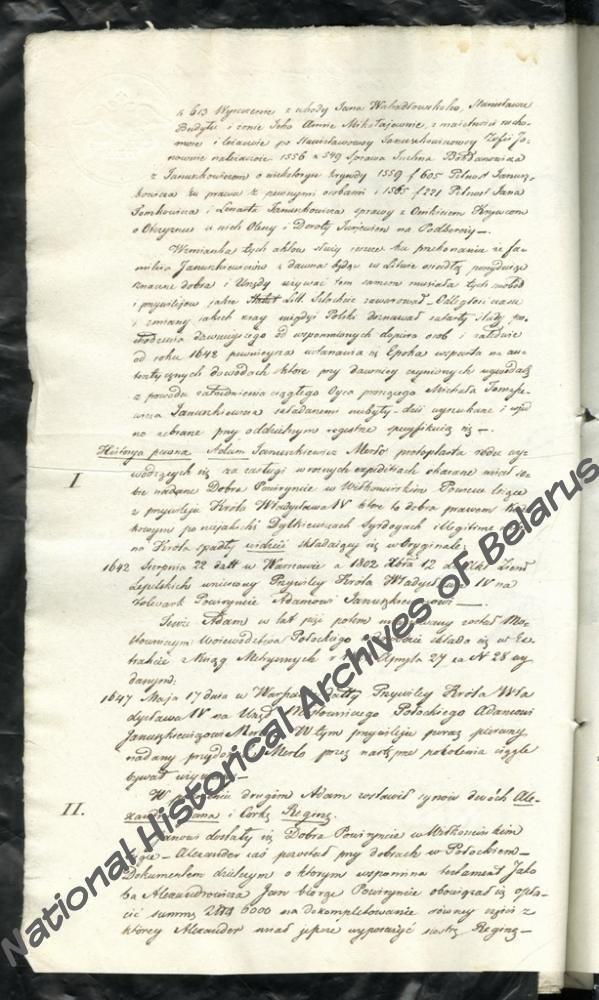 k 613 Wyrzeczenie z ugody Jana Stanisława
Budytu i żonie Jeho Annie Mikołajewnie, z maiętności rucho-
mości i leżących po Stanisławowey Januszkowiczowey Zofii Ja-
nownie należącéie 1556 k 549 Sprawa
z Januszkowiczem o niektóryie krzywdy 1559 f 605 Pełnost Janusz-
kowicza ku prawu z pewnymi osobami i 1565 f 221 Pełnost Jana
Tomkowicza i Lenarta Januszkowicza sprawy z
o Obryzku u nich Oleny i Doroty Jurjewien na Podborciy
Wzmianka tych aktów służy jeszcze ku przekonaniu że fa-
milia Januszkowiczów z dawna będąc w Litwie osiadłą posiadaiąc
znaczne dobra i Urzędy używać tem samem musiała tych swobod
i przywilejów jakie Stat Litt Szlachcie zawarował. Odległość czasu
i zmiany jakich kray niegdyś Polski doznawał zatarły ślady po-
chodzenia dawnieyszego od wspomnionych dopiero osob i zaledwie
od roku 1642 pewnieysza ustanawia się Epoka wsparta na au-
tentycznych dowodach które przy dawniey czynionych wywodach
z powodu zatrudnienia ciągłego Oyca proszącego Michała Tomasze-
wicza Januszkiewicza składanemi niebyły dziś wyszukane i wpeł-
no zebrane przy oddzielnym regestrze specyfikuią się
Historya pewna Adam Januszkiewicz Merło protoplasta rodu wy-
I wodzących się za zasługi w roznych expeditiach okazane miał so-
bie nadane Dobra Powiryńcie w Wiłkomirskim Powiecie leżące
z przywileju Króla Władysława IV które to dobra prawem
kowym po niejakich Dytkiewiczach Syrdogach illegitime
na Króla spadły widzieć składaiący się w Oryginale
1642 Sierpnia 22 datt w Warszawie a 1802 Xbra 12 do Akt Ziem
Lepelskich wniesiony Przywiley Króla Władysława IV na
folwark Powirynie Adamowi Januszkiewiczowi
Tenże Adam w lat pięć potem mianowany został Mo-
stowniczym Województwa Połockiego składa się w Ex-
trakcie z Xiąg Metrycznych r Apryla 27 za N 28 wy-
danym
1647 Maja 17 dnia w Warszawie datty Przywiley Króla Wła
dysława IV na Urząd Mostowniczego Połockiego Adamowi
Januszkiewiczowi Merło W tym przywileju puraz pierwszy
nadany przydomek Merło przez następne pokolenia ciągle
bywał używany
II. W pokoleniu drugim Adam zostawił synow dwóch Ale-
xandra Jana i Corkę Reginę
Janowi dostały się Dobra Powiryncie w Wiłkomirskim
Alexander zaś pozostał przy dobrach w Połockiem
Dokumentem dzielczym o którym wspomina testament Jako
ba Alexandrowicza Jan biorąc Powirynie obowiązał się opła-
cić summę 6000 na dokompletowanie równey części z
którey Alexander miał jeszcze wyposażyć siostrę Reginę
National Historical Archives of Belarus